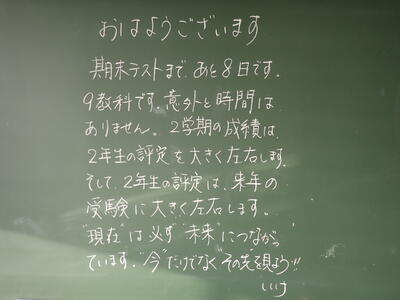 おはようございます
期末テストまで、あと8日です。
9教科です。意外と時間は
ありません。2学期の成績は、
2年生の評定を大きく左右します。
そして、2年生の評定は、来年の
受験に大きく左右します。
"現在"は必ず"未来"につながっ
ています。"今"だけでなく"その先"を見よう!!
いけ